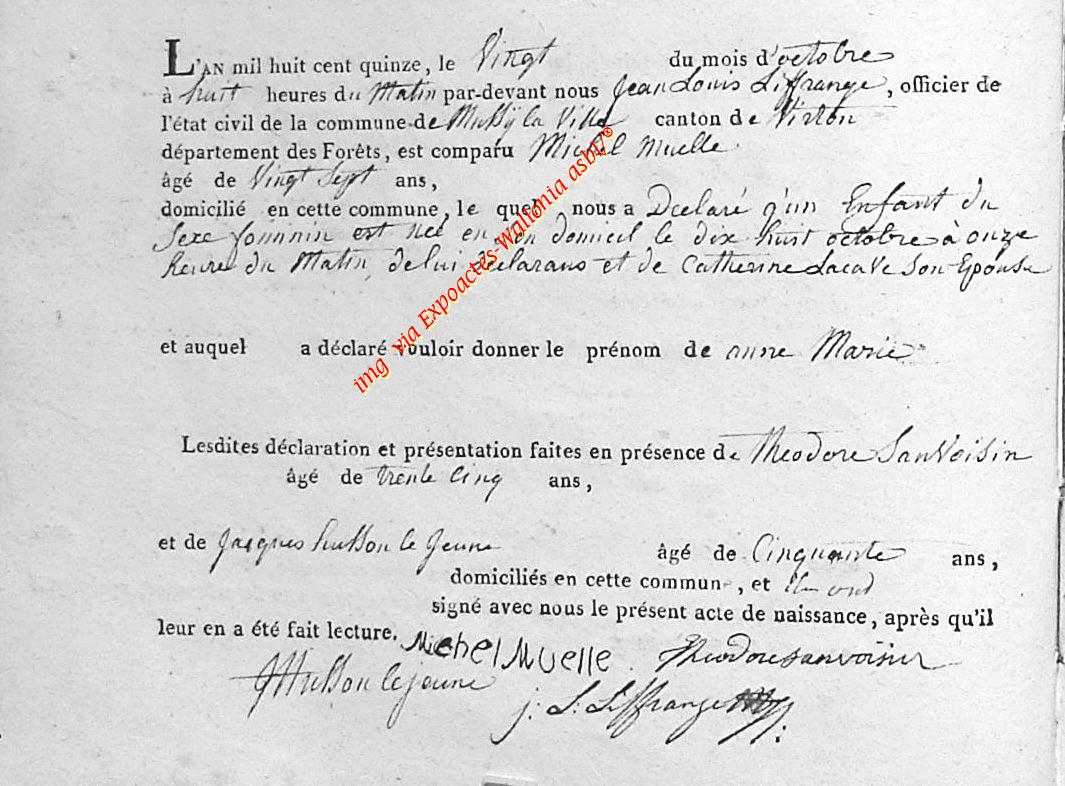 L'AN mil huit cent quinze, le Vingt du mois d'octobre
à huit heures du Matin par-devant nous Jean Louis Liffrange, officier de
l'état civil de la commune de Mussy la Ville canton de Virton
département des Forêts, est comparu Michel Muelle
âgé de Vingt Sept ans,
domicilié en cette commune, le quel nous a Declaré q'un Enfant du
Sexe fominin est née en son domicil le dix huit octobre à onze
heure du Matin, de lui declarans et de Catherine Lacave Son Epouse
et auquel a déclaré vouloir donner le prénom de anne Marie
Lesdites déclaration et présentation faites en présence de Theodore Sanvoisin
âgé de trente cinq ans,
et de Jacques husson le Jeune âgé de Cinquante ans,
domiciliés en cette commune, et ont
signé avec nous le présent acte de naissance, après qu'il
leur en a été fait lecture. Michel Muelle Theodore sanvoisin
J Husson le jeune
j: L: Liffrange
img via Expoactes-Wallonia asbl®